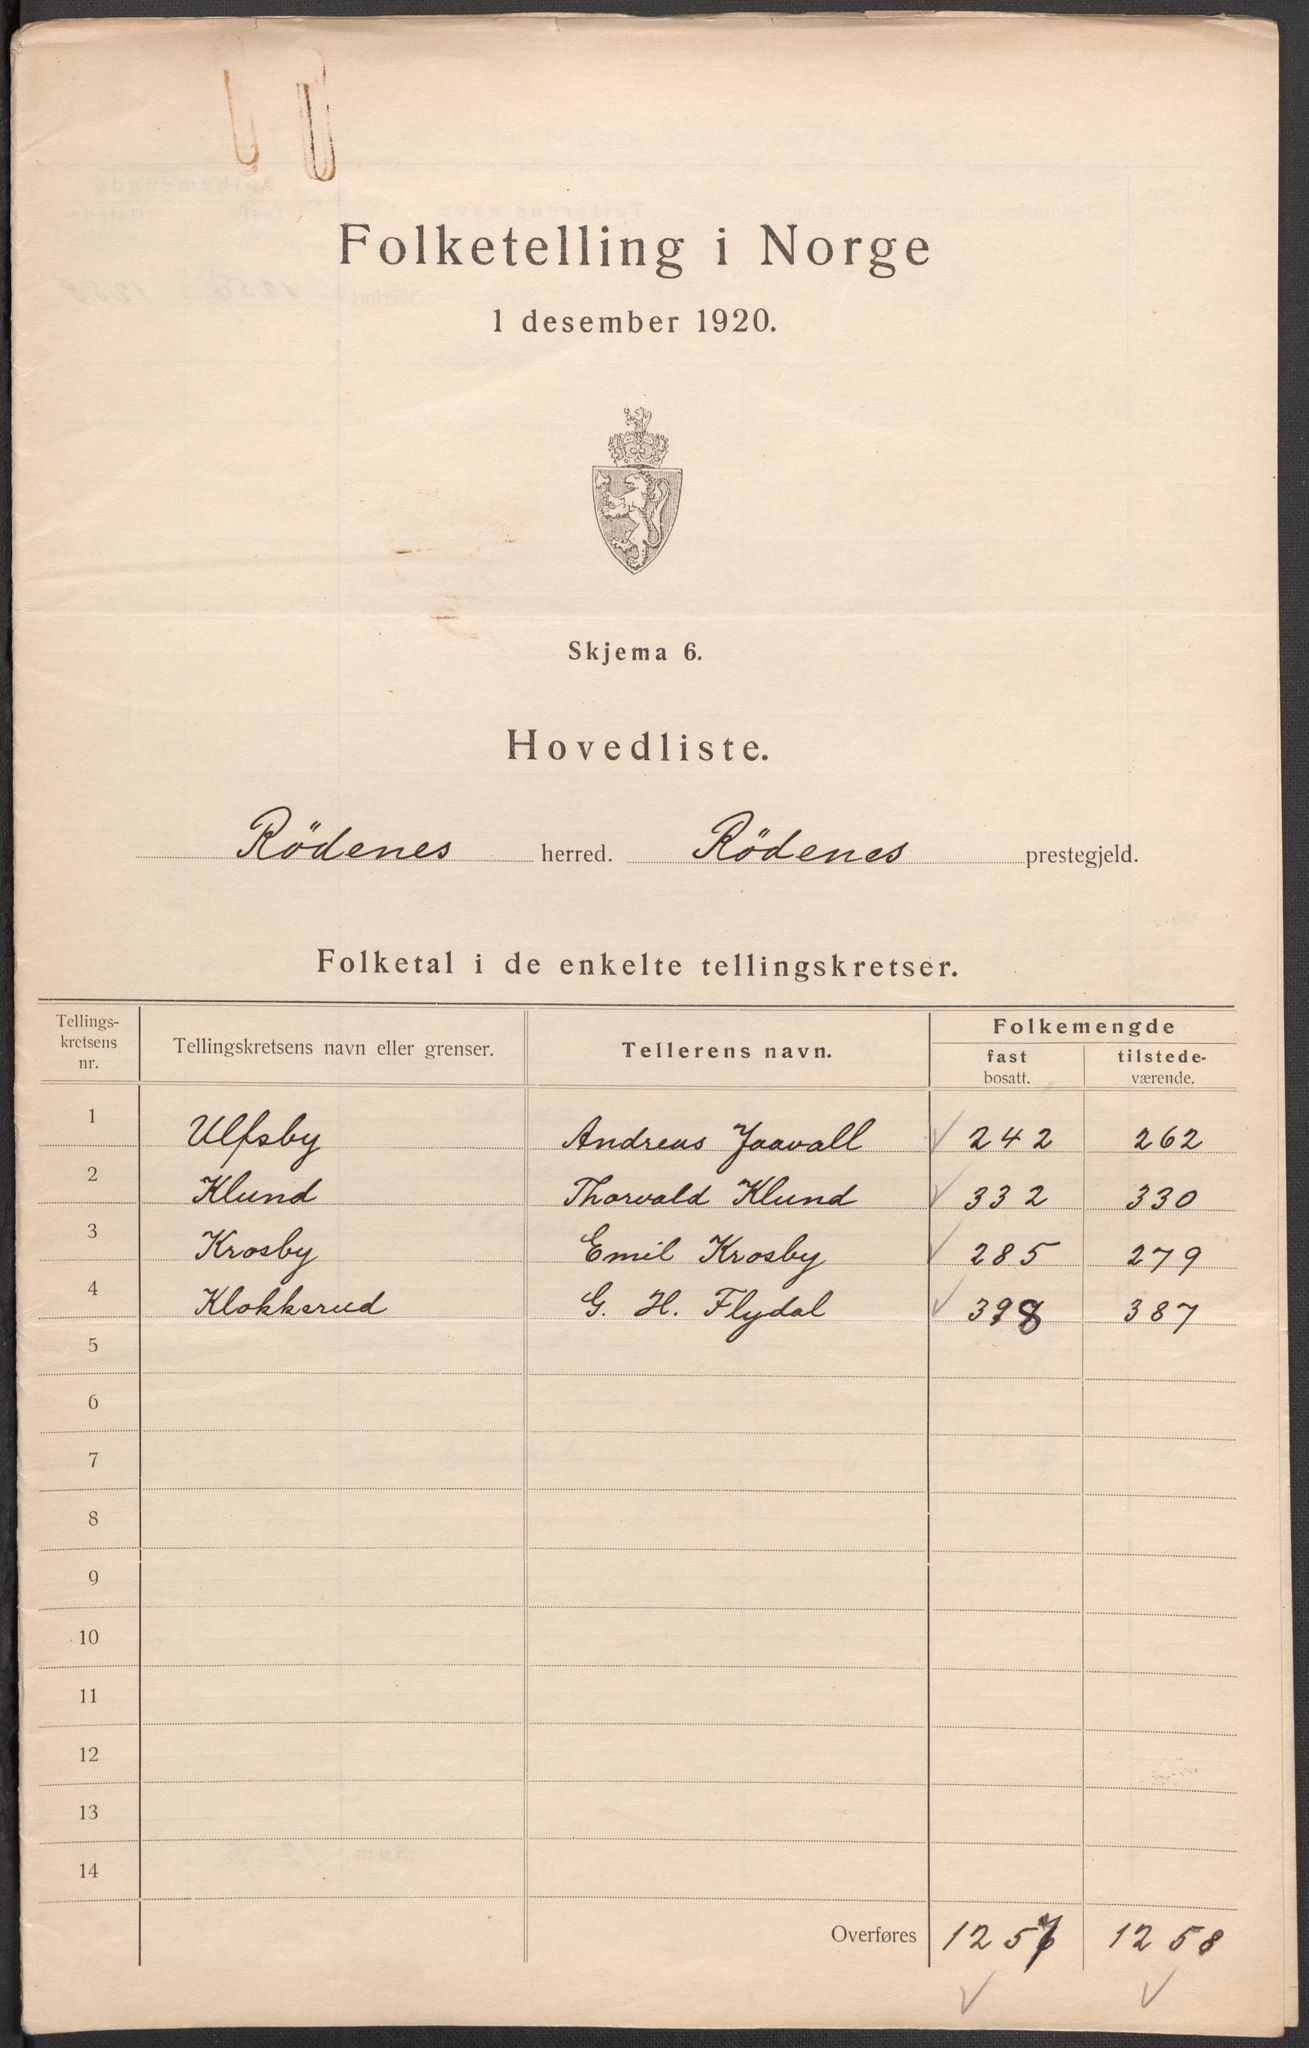 Folketelling i Norge
1 desember 1920.
Skjema 6.
Hovedliste.
Rödenes herred. Rödenes prestegjeld.
Folketal i de enkelte tellingskretser.
Tellings-
kretsens
nr.
Tellingskretsens navn eller grenser.
Tellerens navn.
Folkemengde
fast
bosatt.
tilstede-
værende.
1 Ulfsby Andreas Jaavall 242 262
2 Klund Thorvald Klund 332 330
3 Krosby Emil Krosby 285 279
4 Klokkerud G. H. Flydal 398 387
5
6
7
8
9
10
11
12
13
14
Overføres 1257 1258